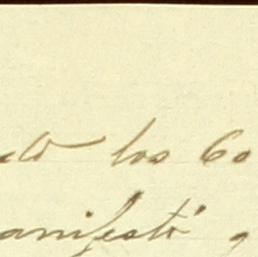 los Co
anifestó